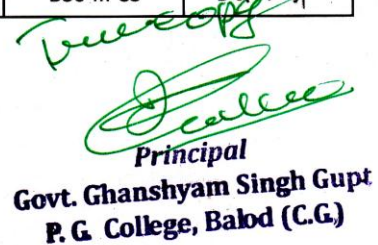 True copy
Principal
Govt. Ghanshyam Singh Gupt
P. G. College, Balod (C.G.)